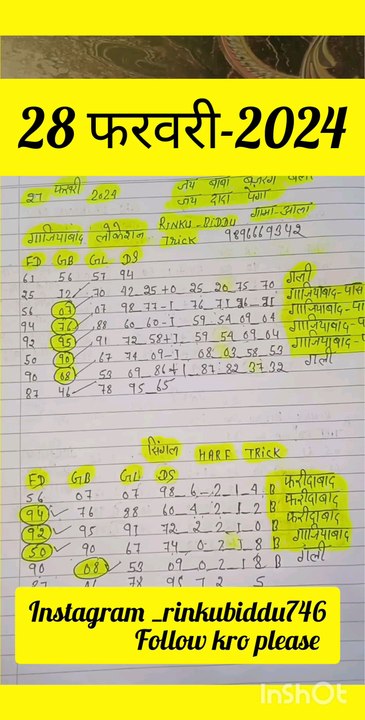 28 फरवरी-2024
जय बाबा बजरंग बली
27 फरवरी 2024 जय दादा पंगा
गाजियाबाद लोकेशन RINKU-BIDDU गामा-आलां
Trick 9896669342
FD GB GL DS
61 56 57 94 गली
25 12 70 42 25+0 25 20 75 70 गाजियाबाद-पास
56 07 07 98 77-1 76 71 26 21 गाजियाबाद-
94 76 88 60 60-1 59 54 09 04 गाजियाबाद-
92 95 91 72 58+1 59 54 09 04 गाजियाबाद-
50 90 67 74 09-1 08 03 58 53
90 08 53 09 86+1 87 82 37 32 गली
87 46 78 95 65
सिंगल HARF TRICK
FD GB GL DS
56 07 07 98 6 2 1 4 B फरीदाबाद
94 76 88 60 4 2 1 2 B फरीदाबाद
92 95 91 72 2 2 1 0 B फरीदाबाद
50 90 67 74 0 2 1 8 B गाजियाबाद
90 08 53 09 0 2 1 8 B गली
78 95 7 2 5
Instagram _rinkubiddu746
Follow kro please
InShOt